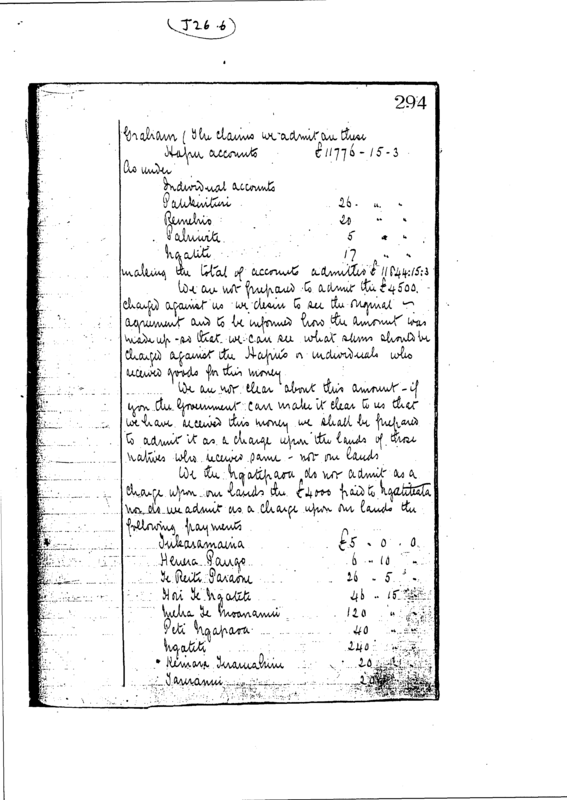 (J26.6)
294
Graham ( The claims we admit are these
Hapu accounts £11776-15-3
As under
Individual accounts
26 " "
20 " "
5 " "
Ngatete 17 " "
making the total of accounts admitted £11844:15:3
We are not prepared to admit the £4500
charged against us we desire to see the original
agreement and to be informed how the amount was
made up - so that we can see what sums should be
charged against the Hapu's or individuals who
received goods for this money
We are not clear about this amount - if
you the Government can make it clear to us that
we have received this money we shall be prepared
to admit it as a charge upon the lands of those
natives who received same - not our lands
We the Ngatipaoa do not admit as a
charge upon our lands the £4000 paid to
nor do we admit as a charge upon our lands the
following payments
£5 - 0 . 0
Henera Pango 6 - 10 "
Te Reiti Paraone 26 - 5 "
Hori Te Ngatete 46 - 15
Te Moananui 120 " "
Peti Ngapaoa 40 "
Ngatete 240 " "
20
Tauranui